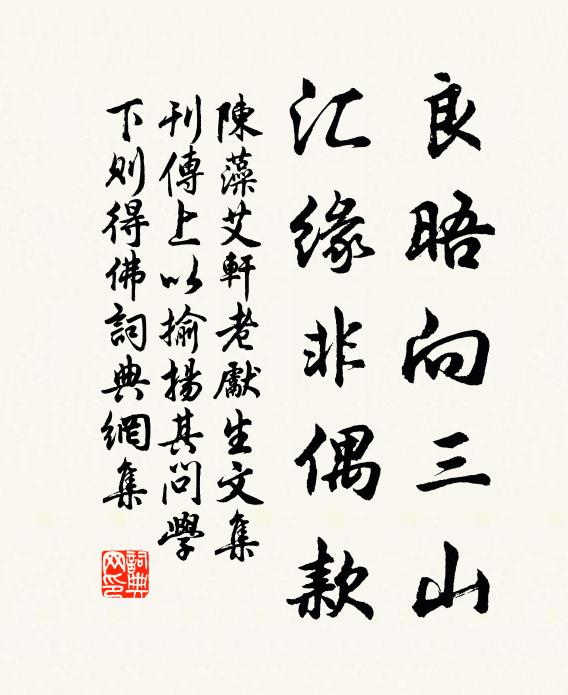 良晤向三山
汇缘非偶款
陳藻艾軒老獻生文集
刊傳上以揄揚其問學
下则得佛詞典網集
詞典
网印